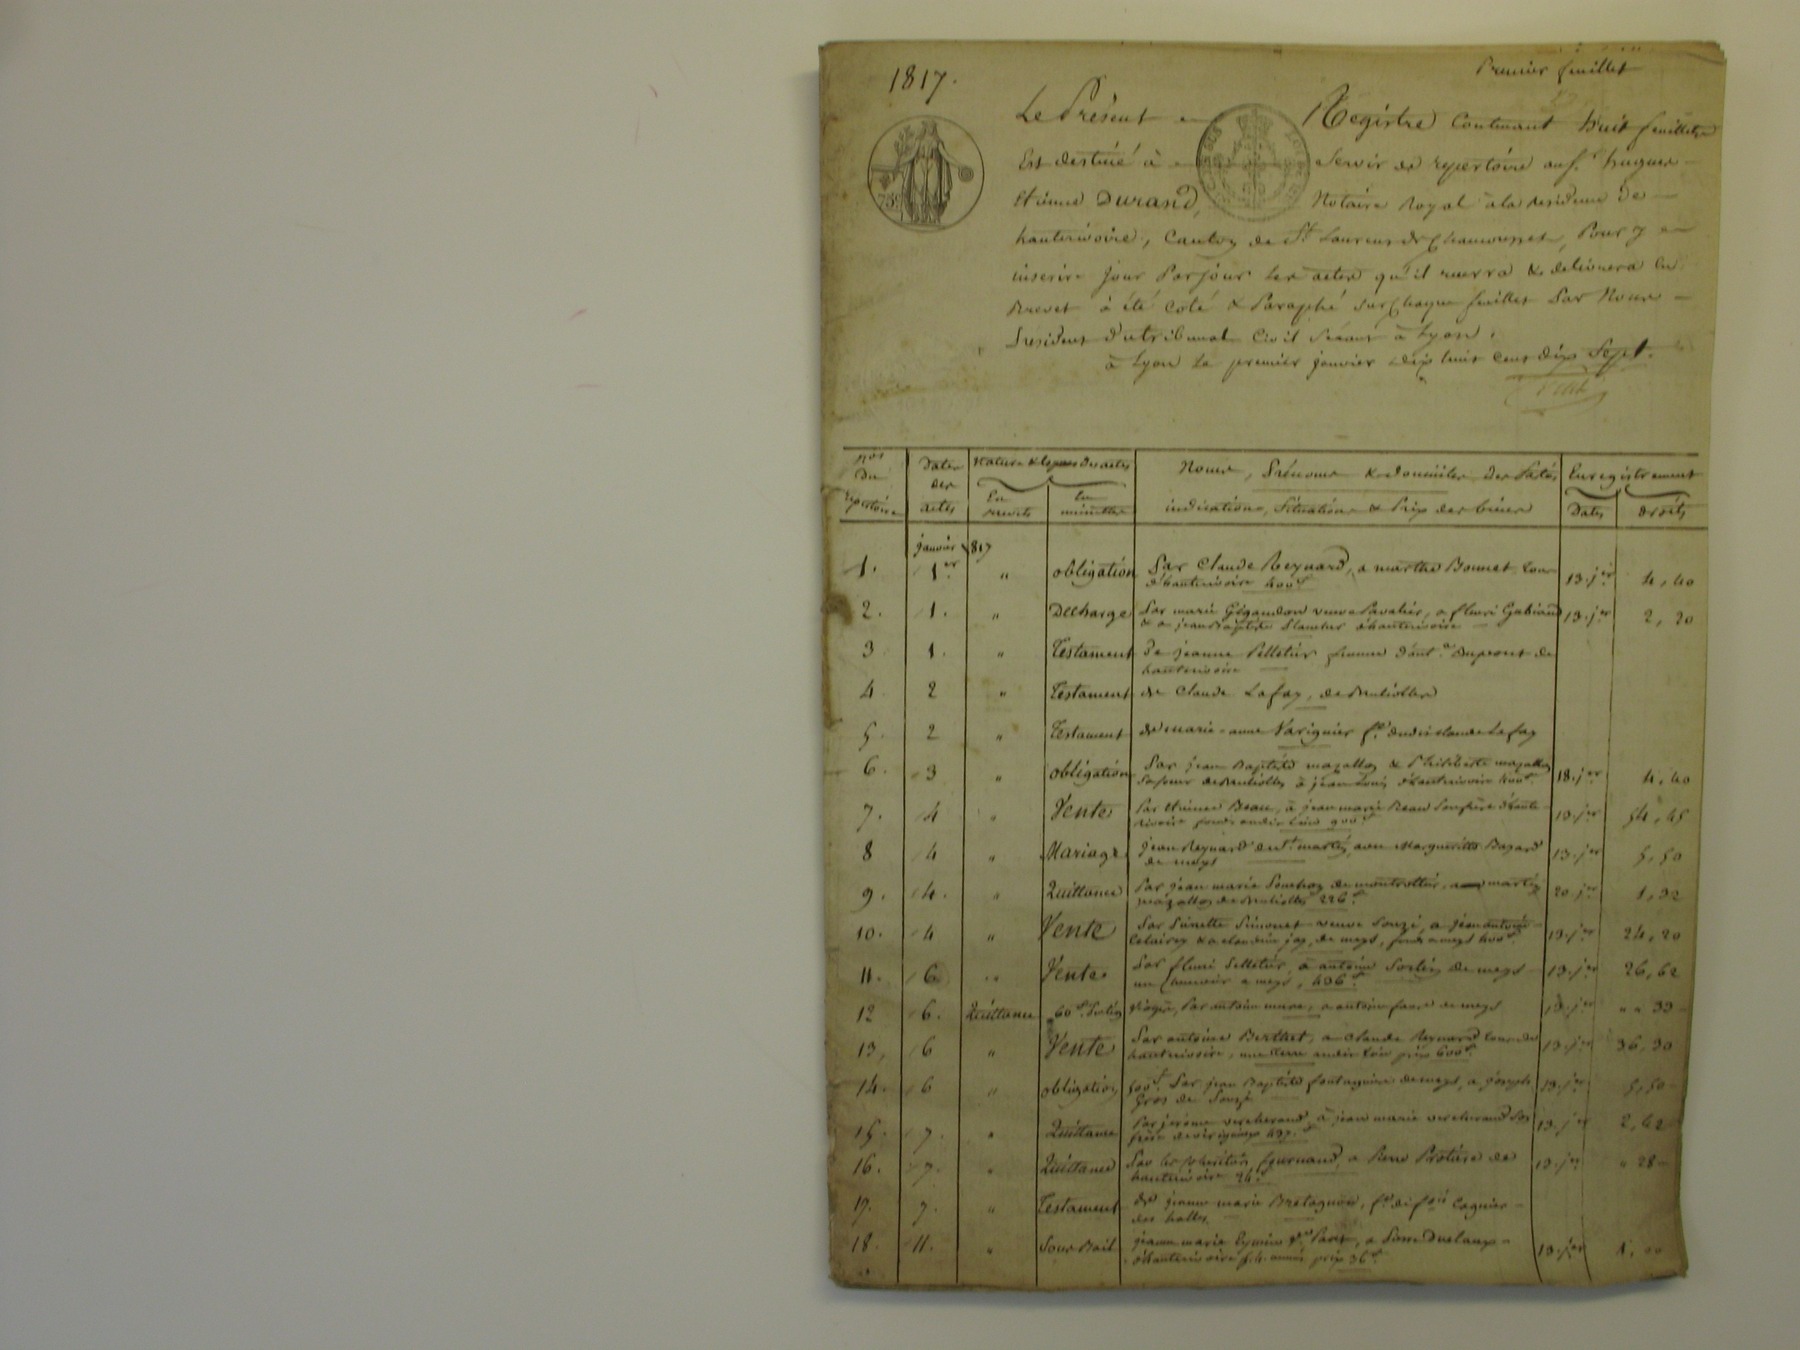 1817.
Premier feuillet
Le Présent Registre Contenant huit feuillets
Est destiné à Servir de repertoire au S.r hugues
Etienne Durand, Notaire Royal à la residence de
hauterivoire, Canton de St Laurent de Chamousset, Pour y
inscrire jour Par jour les actes qu'il recevra & delivrera en
Brevet à été Coté & Paraphé sur Chaque feuillet Par Nous
Président du tribunal Civil Séant à Lyon.
à Lyon le premier janvier dix huit Cent dix Sept.
75c
Nos du repertoire
Dates des actes
Nature & espece des actes
En brevets
En minutes
Noms, Prénoms & domiciles des Parties
indications, Situations & Prix des biens
Enregistrement
Dates
droits
janvier 1817
1. 1er " obligation Par Claude Reynard, a marthe Bonnet, tous
d'hauterivoire 400f 13. jer 4,40
2. 1. " Decharge Par marie veuve a fleuri
& a jean Baptiste d'hauterivoire 13. jer 2,20
3 1. " Testament De jeanne Pelletier femme d'ant.e Dupeout de
hauterivoire
4. 2 " Testament de Claude Lafay, de Brulioles
5. 2 " Testament de marie-anne Varignier fe dudit Claude Lafay
6. 3 " obligation Par jean Baptiste mazallon & Philiberte mazallon
Sa soeur de Brulioles à jean Louis d'hauterivoire 400f 18. jer 4,40
7. 4 " Vente Par etienne Beau, à jean marie Beau Son frere d'haute-
rivoire fonds audit Lieu 900f 13. jer 54,45
8 4 " Mariage jean Reynard de St martin, avec Margueritte Bazard
de meys 13. jer 5,50
9. 4. " Quittance Par jean marie de montrottier, a martin
mazallon de Brulioles 226f 20. jer 1,32
10. 4 " Vente Par Pierrette Simonet veuve Souzi, a jean antoine
& a Claudine jay, de meys, fonds a meys 400f 13. jer 24,20
11. 6 " Vente Par fleuri Pelletier, à antoine de meys
un a meys, 436f 13. jer 26,62
12 6. Quittance 60f Par antoine mure, a antoine faure de meys 13. jer " " 33
13, 6 " Vente Par antoine Berthet, a Claude Reynard tous de
hauterivoire, une terre audit Lieu prix 600f 13. jer 36,30
14. 6 " obligation 500f Par jean Baptiste de meys, a joseph
Gros de Souzi 13. jer 5,50
15. 7. " Quittance Par jerome vercherand, à jean marie vercherand Son
frere 437f 13. jer 2,42
16. 7. " Quittance Par les heritiers fournand, a Pierre Protiere de
hauterivoire 24f 13. jer " 28
17. 7. " Testament de jeanne marie Bretagnon, fe de fois Cognier
des halles
18. 11. " Sous Bail jeanne marie a Pierre Duclaux
d'hauterivoire p. 4. années prix 36f 13. jer 1,